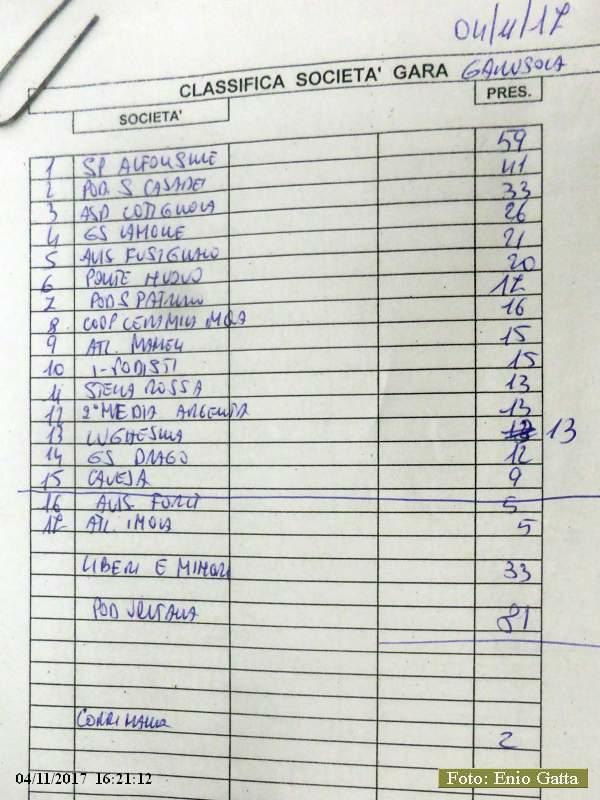 04/11/17
CLASSIFICA SOCIETA' GARA GARUSOLA
SOCIETA' PRES.
1 SP ALFONSINE 59
2 POD. S CASADEI 41
3 ASD COTIGNOLA 33
4 GS LAMONE 26
5 AVIS FUSIGNANO 21
6 PONTE NUOVO 20
7 POD S PATRIZIO 17
8 COOP CERAMICA IMOLA 16
9 ATL. MAMELI 15
10 I-PODISTI 15
11 STELLA ROSSA 13
12 2° MEDIA ARGENTA 13
13 LUGHESINA 13
14 GS DRAGO 12
15 CAVEJA 9
16 AVIS FORLI 5
17 ATL IMOLA 5
LIBERI E MINORI 33
POD VOLTANA 81
CORRI 2
04/11/2017 16:21:12
Foto: Enio Gatta